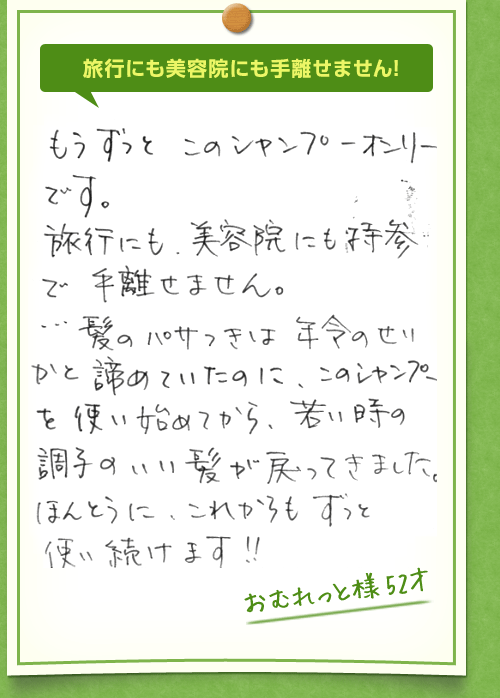 旅行にも美容院にも手離せません!
もうずっと このシャンプーオンリー
です。
旅行にも、美容院にも持参
で 手離せません。
…髪のパサつきは 年令のせい
かと諦めていたのに、このシャンプー
を使い始めてから、若い時の
調子のいい髪が戻ってきました。
ほんとうに、これからも ずっと
使い続けます!!
おむれっと様 52才